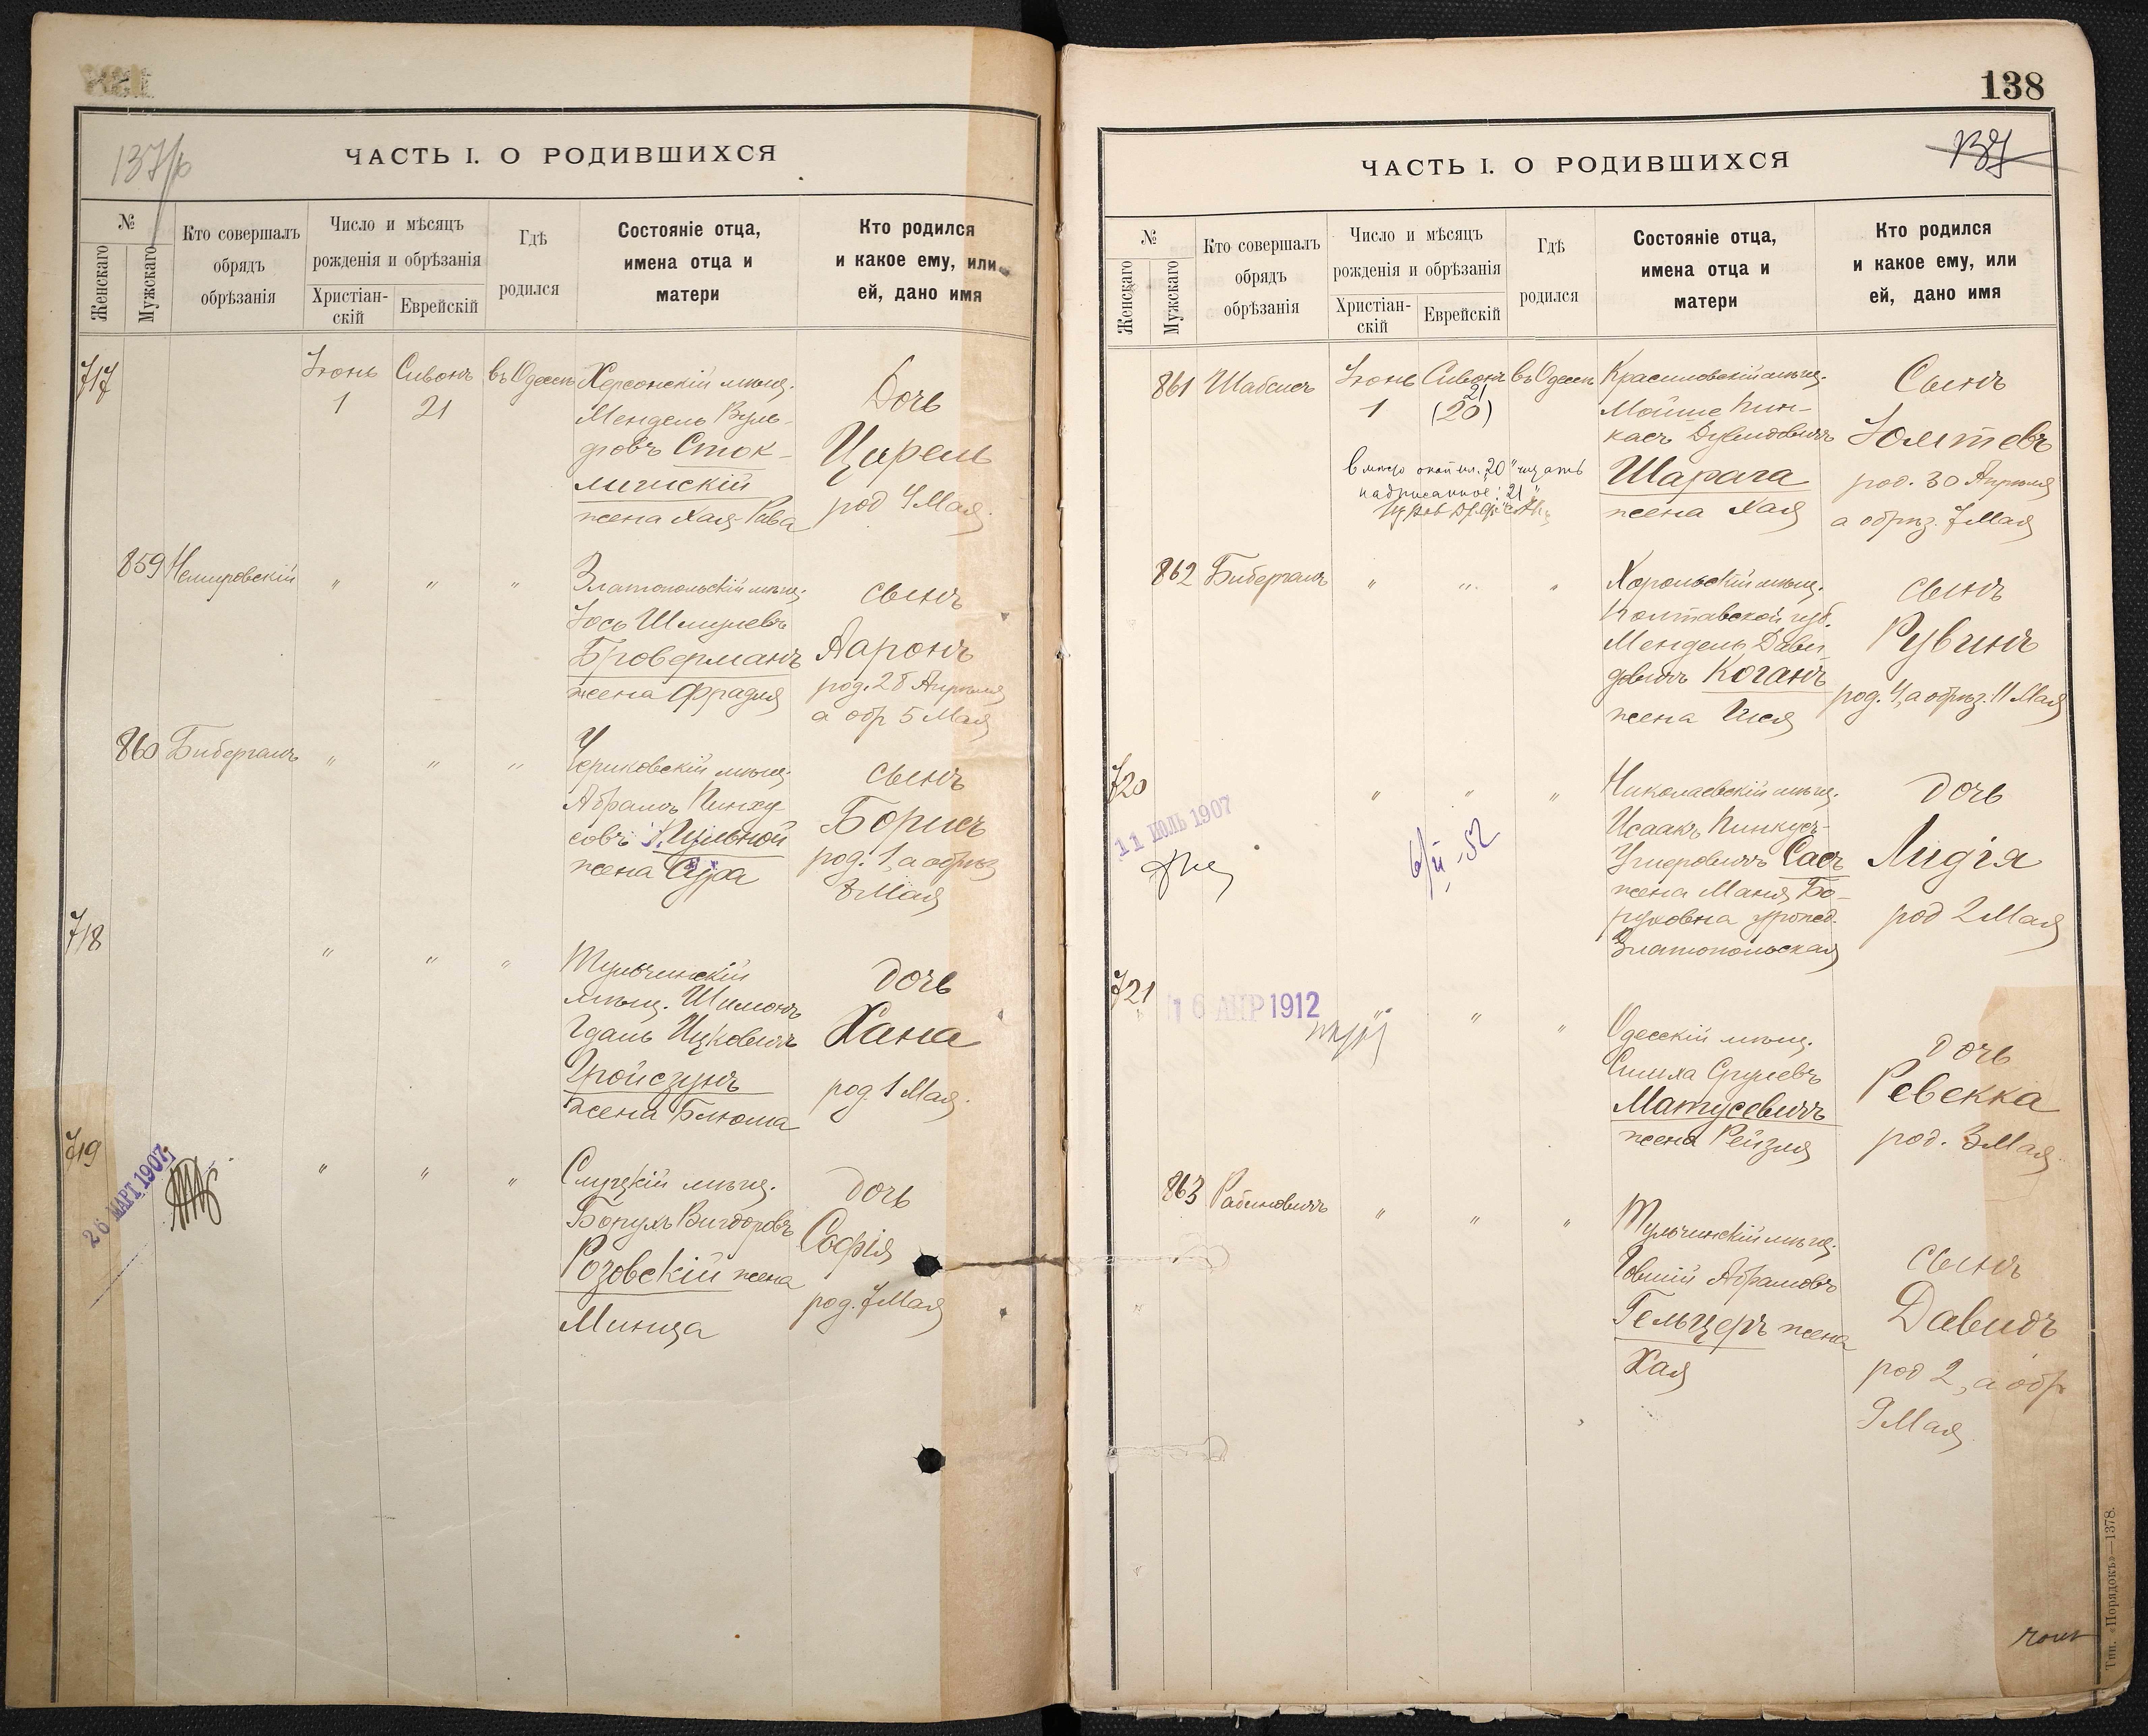 137/b
ЧАСТЬ I. О РОДИВШИХСЯ
№
Женскаго
Мужскаго
Кто совершалъ
обрядъ
обрѣзанія
Число и мѣсяцъ
рожденія и обрѣзанія
Христіан-
скій
Еврейскій
Гдѣ
родился
Состояніе отца,
имена отца и
матери
Кто родился
и какое ему, или
ей, дано имя
717
Іюнь
1
Сивонъ
21
въ Одессѣ
Херсонскій мѣщ.
Мендель Вуль-
фовъ Сток-
личскій
жена Хая-Рива
Дочь
Цирель
род 4 Мая
859
Немировскій
" " "
Златопольскій мѣщ.
Іось Шмулевъ
Броверманъ
жена Фрадля
сынъ
Ааронъ
род. 28 Апрѣля
а обр 5 Мая
860
Бибергалъ
" " "
Чериковскій мѣщ.
Абрамъ Пинху
совъ
жена Сура
сынъ
Борисъ
род. 1, а обрѣз
8 Мая
718
" " "
Тульчинскій
мѣщ. Шимонъ
Гдаль Ицковичъ
Гройсзунъ
жена Блюма
дочь
Хана
род 1 Мая.
719
26 МАРТ 1907
" " "
Слуцкій мѣщ.
Борухъ Вигдоровъ
Розовскій жена
Минца
дочь
Софія
род. 7 Мая
138
137
ЧАСТЬ I. О РОДИВШИХСЯ
№
Женскаго
Мужскаго
Кто совершалъ
обрядъ
обрѣзанія
Число и мѣсяцъ
рожденія и обрѣзанія
Христіан-
скій
Еврейскій
Гдѣ
родился
Состояніе отца,
имена отца и
матери
Кто родился
и какое ему, или
ей, дано имя
861
Шабсисъ
Іюнь
1
Сивонъ
21
(20)
въ Одессѣ
"20" читать
надписанное: "21"
Красиловскій мѣщ.
Мойше Пин-
касъ Дувидовичъ
Шарага
жена Хая
Сынъ
Іолтевъ
род. 30 Апрѣля
а обрѣз. 7 Мая
862
Бибергалъ
" " "
Хорольскій мѣщ.
Полтавской губ.
Мендель Дави
довичъ Коганъ
жена
сынъ
Рувинъ
род. 4, а обрѣз. 11 Мая
720
11 ИЮЛЬ 1907
" " "
6/II -52
Николаевскій мѣщ.
Исаакъ Пинкусъ-
Сасъ
жена Маня Бо-
руховна урожд.
Златопольская
дочь
Лидія
род 2 Мая
721
16 АПР 1912
" " "
Одесскій мѣщ.
Симха Срулевъ
Матусевичъ
жена Рейзля
дочь
Ревекка
род. 3 Мая
863
Рабиновичъ
" " "
Тульчинскій мѣщ.
Абрамовъ
Гельцеръ жена
Хая
сынъ
Давидъ
род 2, а обр
9 Мая
Тип. «Порядокъ»—1378.